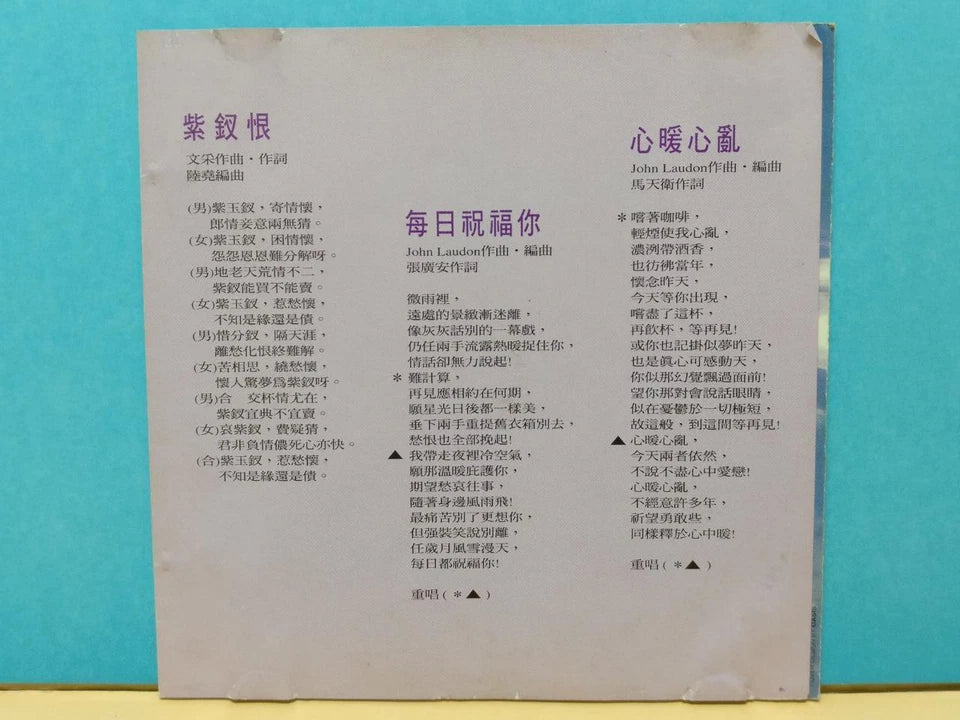 紫釵恨
文采作曲・作詞
陸堯編曲
(男)紫玉釵，寄情懷，
郎情妾意兩無猜。
(女)紫玉釵，困情懷，
怨怨恩恩難分解呀。
(男)地老天荒情不二，
紫釵能買不能賣。
(女)紫玉釵，惹愁懷，
不知是緣還是債。
(男)惜分釵，隔天涯，
離愁化恨終難解。
(女)苦相思，繞愁懷，
懷人驚夢爲紫釵呀。
(男)合　交杯情尤在，
紫釵宜典不宜賣。
(女)哀紫釵，費疑猜，
君非負情儂死心亦快。
(合)紫玉釵，惹愁懷，
不知是緣還是債。
每日祝福你
John Laudon作曲・編曲
張廣安作詞
微雨裡，
遠處的景緻漸迷離，
像灰灰話別的一幕戲，
仍任兩手流露熱暖捉住你，
情話卻無力說起!
＊難計算，
再見應相約在何期，
願星光日後都一樣美，
垂下兩手重提舊衣箱別去，
愁恨也全部挽起!
▲我帶走夜裡冷空氣，
願那溫暖庇護你，
期望愁哀往事，
隨著身邊風雨飛!
最痛苦別了更想你，
但强裝笑說別離，
任歲月風雪漫天，
每日都祝福你!
重唱(＊▲)
心暖心亂
John Laudon作曲・編曲
馬天衛作詞
＊嚐著咖啡，
輕煙使我心亂，
濃洌帶酒香，
也彷彿當年，
懷念昨天，
今天等你出現，
嚐盡了這杯，
再飲杯，等再見!
或你也記掛似夢昨天，
也是眞心可感動天，
你似那幻覺飄過面前!
望你那對會說話眼睛，
似在憂鬱於一切極短，
故這般，到這間等再見!
▲心暖心亂，
今天兩者依然，
不說不盡心中愛戀!
心暖心亂，
不經意許多年，
祈望勇敢些，
同樣釋於心中暖!
重唱(＊▲)